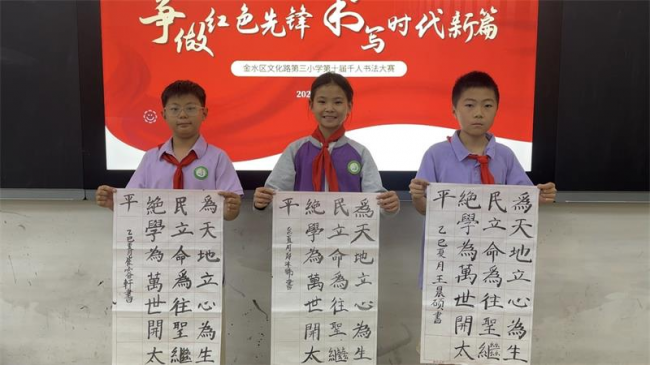 争做红色先锋 书写时代新篇
金水区文化路第三小学第十届千人书法大赛
202
為天地立心為生
民立命為往聖繼
絕學為萬世開太
平
乙巳夏月
書
為天地立心為生
民立命為往聖繼
絕學為萬世開太
平
夏月
書
為天地立心為生
民立命為往聖繼
絕學為萬世開太
平
乙巳夏月王晨硕書